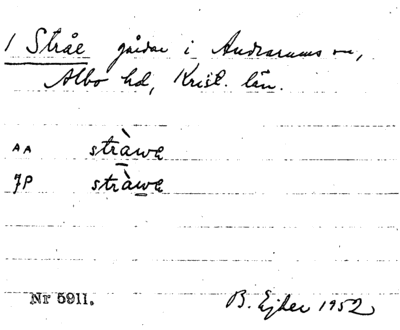 1 Stråe gårdar i Andrarums sn,
Albo hd, Krist. län.
AA stràwa
JP stràwa
Nr 5911. B. Ejder 1952